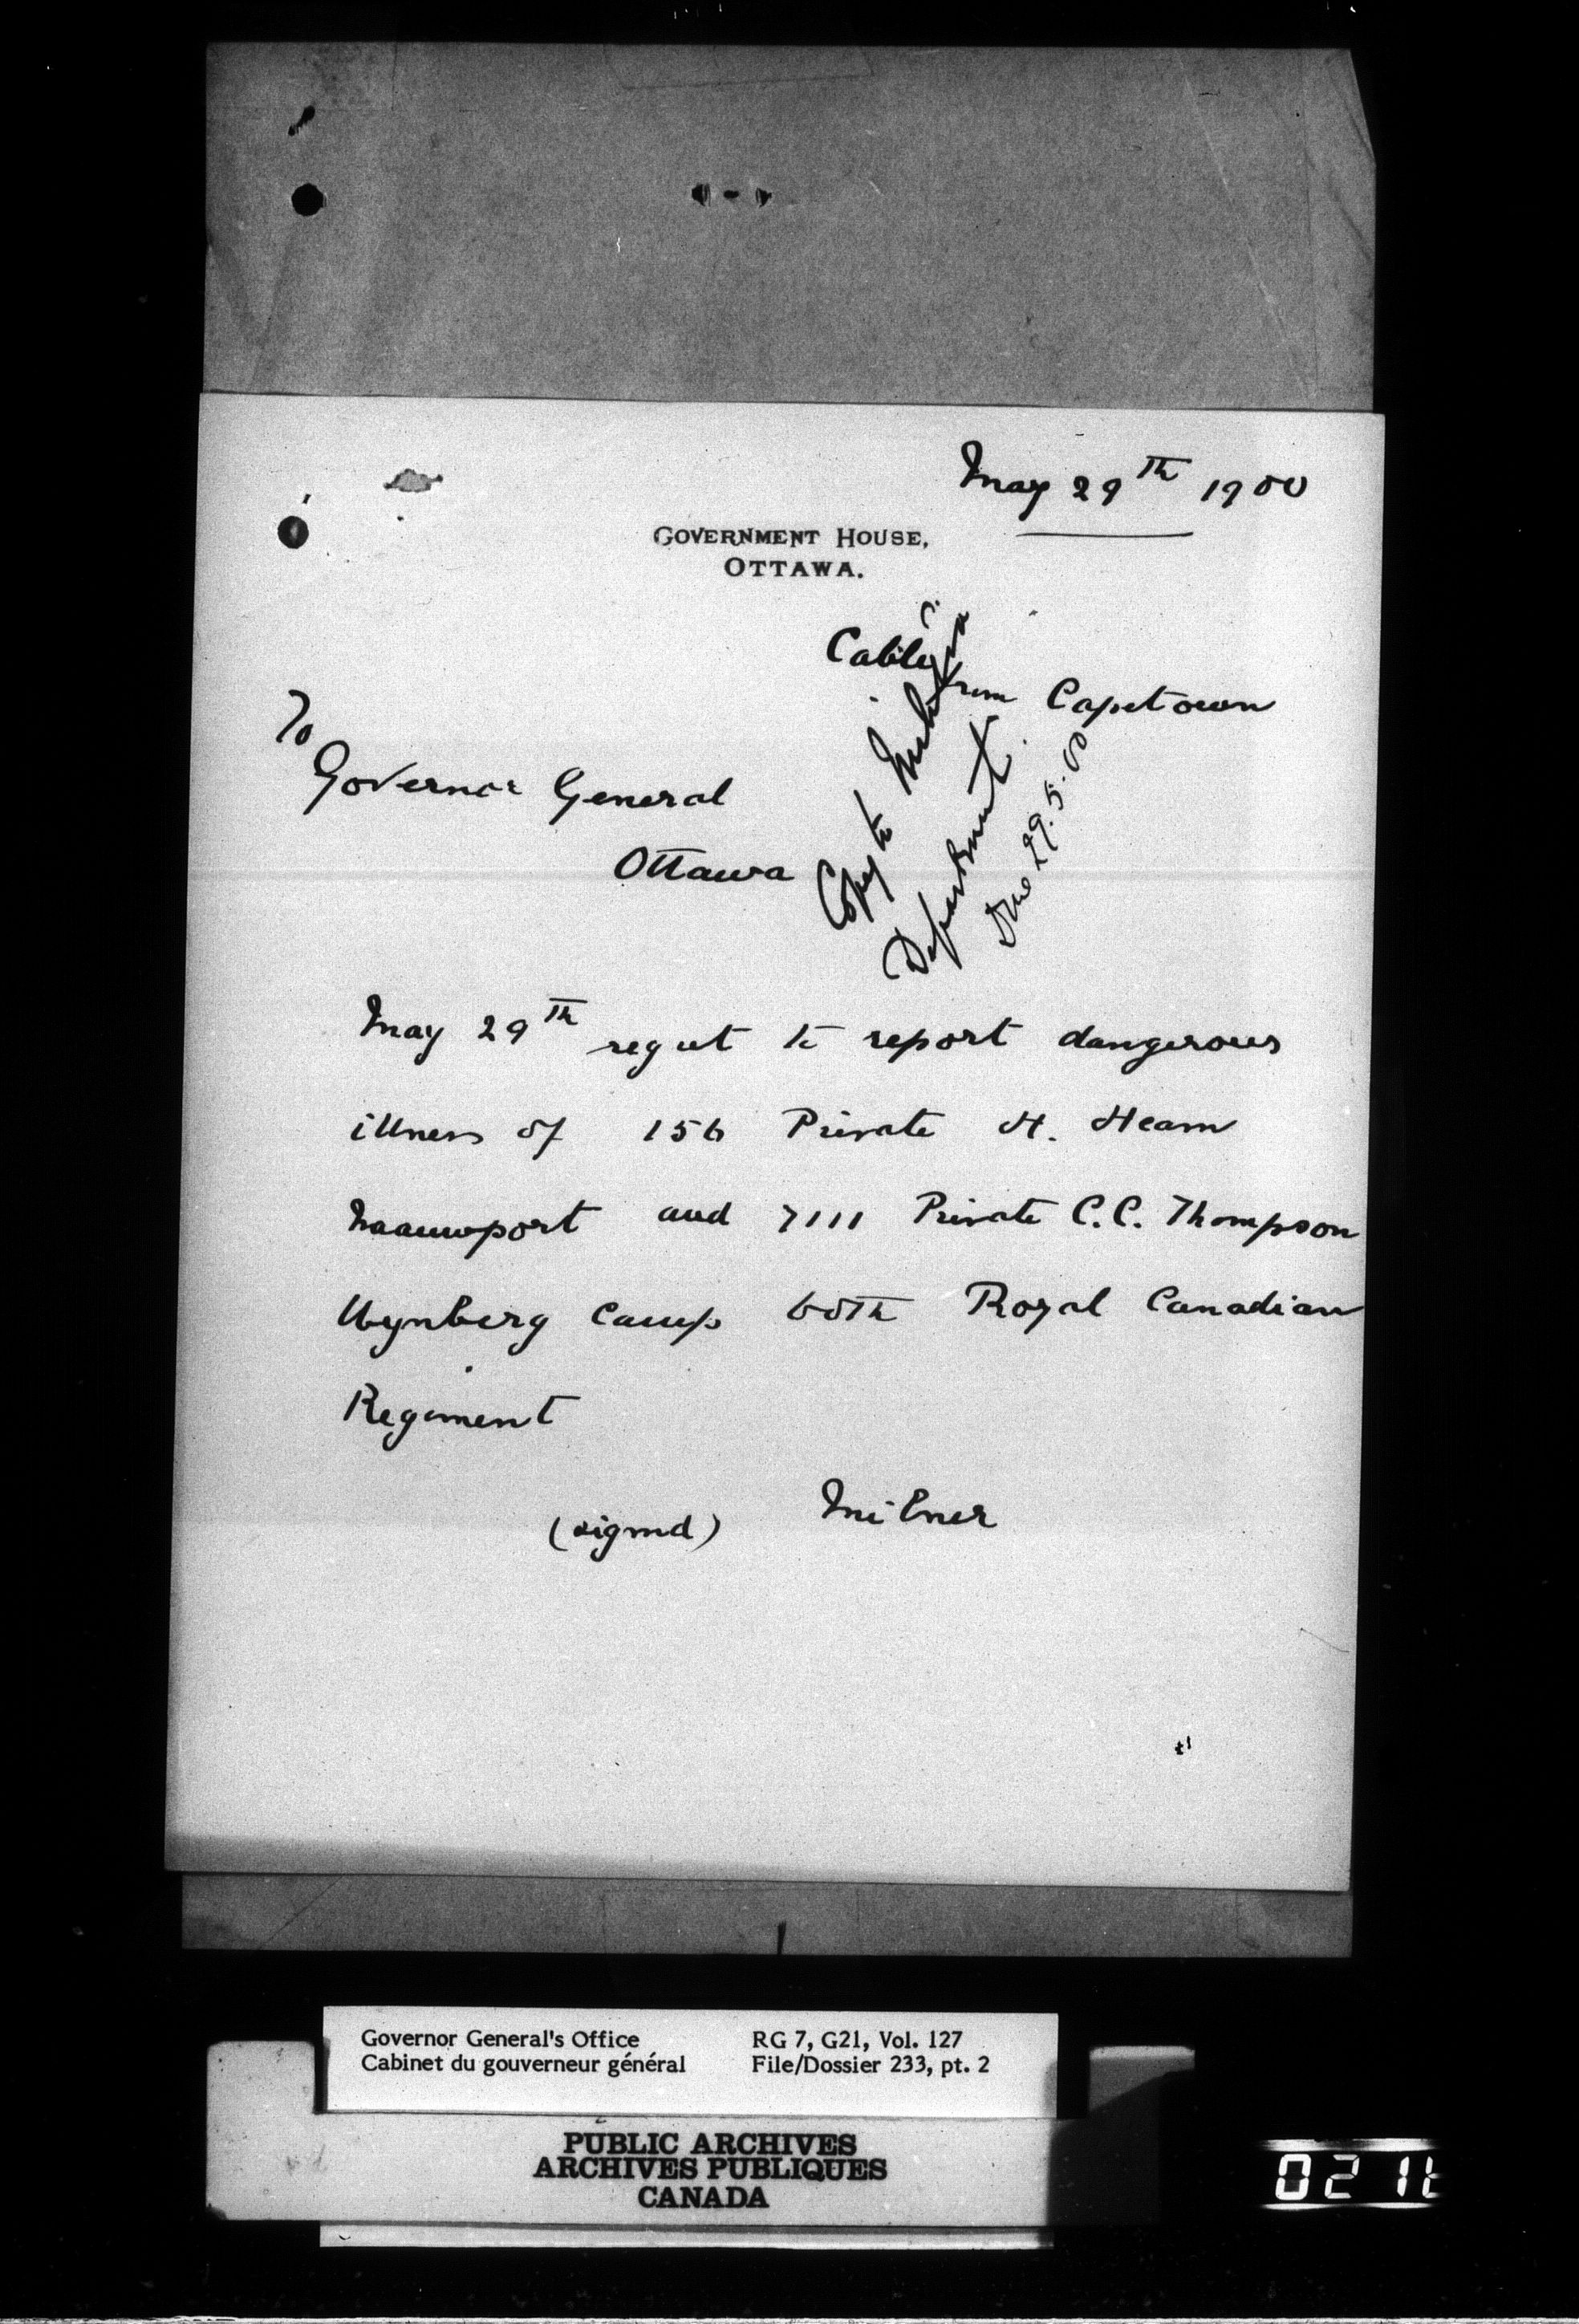 May 29th 1900
GOVERNMENT HOUSE,
OTTAWA.
Cable
from Capetown
To
Governor General
Ottawa
Copy to Militia
Department
29.5.00
May 29th regret to report dangerous
illness of 156 Private H. Hearn
Naauwport and 7111 Private C.C. Thompson
Wynberg Camp both Royal Canadian
Regiment
(signed) Milner
Governor General's Office RG 7, G21, Vol. 127
Cabinet du gouverneur général File/Dossier 233, pt. 2
PUBLIC ARCHIVES
ARCHIVES PUBLIQUES
CANADA